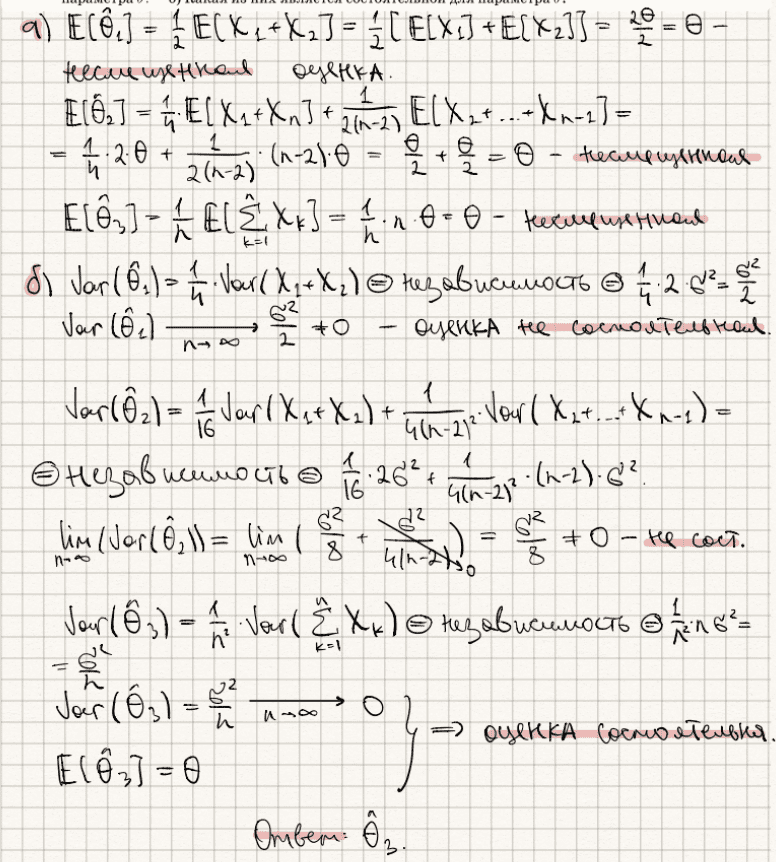 параметра θ? б) какая из них является состоятельной для параметра θ?
а) E[θ̂₁] = 1/2 E[X₁+X₂] = 1/2 [E[X₁] + E[X₂]] = 2θ/2 = θ –
несмещенная оценка.
E[θ̂₂] = 1/4·E[X₁+Xₙ] + 1/(2(n-2)) E[X₂+...+Xₙ₋₁] =
= 1/4·2·θ + 1/(2(n-2))·(n-2)·θ = θ/2 + θ/2 = θ – несмещенная
E[θ̂₃] = 1/n E[∑ₖ₌₁ⁿ Xₖ] = 1/n·n·θ = θ – несмещенная
б) Var(θ̂₁) = 1/4·Var(X₁+X₂) ⊜ независимость ⊜ 1/4·2·σ² = σ²/2
Var(θ̂₁) ⟶ (n→∞) σ²/2 ≠ 0 – оценка не состоятельная.
Var(θ̂₂) = 1/16 Var(X₁+X₂) + 1/(4(n-2)²)·Var(X₂+...+Xₙ₋₁) =
⊜ независимость ⊜ 1/16·2σ² + 1/(4(n-2)²)·(n-2)·σ².
lim (n→∞) (Var(θ̂₂)) = lim (n→∞) (σ²/8 + σ²/(4(n-2)) → 0) = σ²/8 ≠ 0 – не сост.
Var(θ̂₃) = 1/n²·Var(∑ₖ₌₁ⁿ Xₖ) ⊜ независимость ⊜ 1/n²·nσ² =
= σ²/n
Var(θ̂₃) = σ²/n ⟶ (n→∞) 0
} => оценка состоятельня.
E[θ̂₃] = θ
Ответ: θ̂₃.